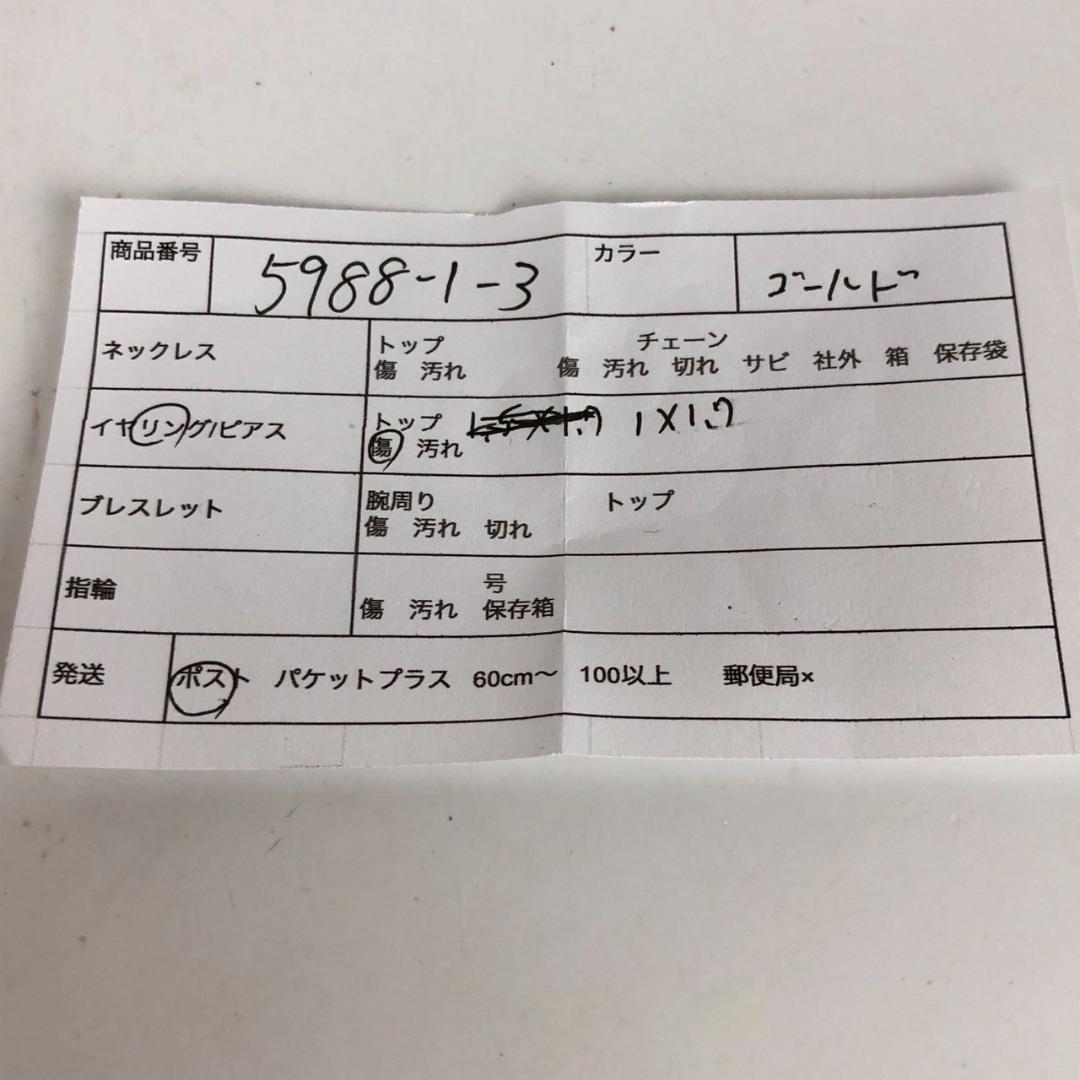 商品番号 5988-1-3 カラー ゴールド
ネックレス トップ チェーン
傷 汚れ 傷 汚れ 切れ サビ 社外 箱 保存袋
イヤリング/ピアス トップ 1×1.7
傷 汚れ
ブレスレット 腕周り トップ
傷 汚れ 切れ
指輪 号
傷 汚れ 保存箱
発送 ポスト パケットプラス 60cm〜 100以上 郵便局×